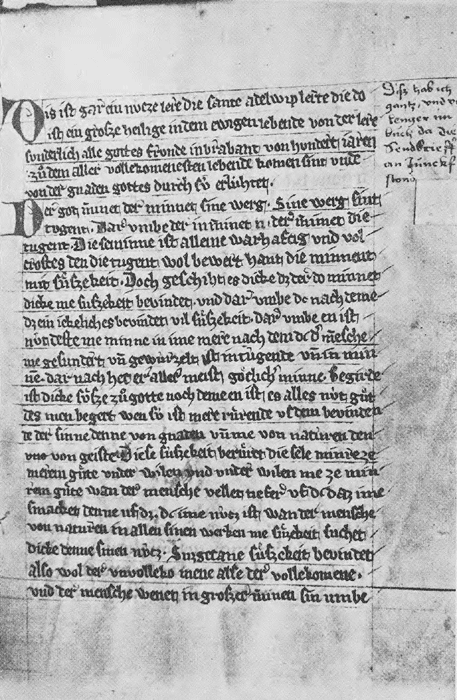 Dis ist gar ein nvcze lere die sante adelwip lerte die do
ist ein grosze heilige in dem ewigen lebende von der lere
sunderlich alle gottes frunde in brabant von hundert iaren
zů dem aller vollekomenesten lebende komen sint vnde
von der gnaden gottes durch sv́ erlúchtet.
Der got minnet der minnet sine werg. Sine werg sint
tvgent. Dar vmbe der in minnet der minnet die
tugent. Die minne ist alleine warhaftig vnd vol
trostes den die tugent wol bewert hant die minnent
mit sůszekeit. Doch geschiht es dicke dz der do minnet
dicke me suszekeit bevindet. vnd dar vmbe do nach deme
dz ein iekeliches bevindet vil sůszekeit. dar vmbe en ist
nvt deste me minne in ime mere nach dem dc der mensche
me gesundert vn̄ gewurzelt ist in tugende vn̄ in min
ne. dar nach het er aller meist gotlich minne. Begirde
ist dicke sůsze zů gotte noch denne en ist es alles nvt gůt
des men begert wen so ist mere rurende vs dem bevinden
de der sinne denne von gnaden vn̄ me von naturen den
von geiste. Diese suszekeit berůret die sele minre ze
merem gůte vnder wilen vnd vnder wilen me ze min
rem gůte wan der mensche vellet vf dc daz ime
smacket denne vf dz. dc ime nvtz ist wan der mensche
von naturen in allen sinen werken me suszekeit suchet
dicke denne sinen nvtz. Susgetane sůszekeit bevindet
also wol der vnvollekomene alse der vollekomene.
vnd der mensche wenet in groszer minnen sin vmbe
Disz hab ich
gantz, vnd
lenger im
buch da die
Sendbrieff
an Junckf
stond